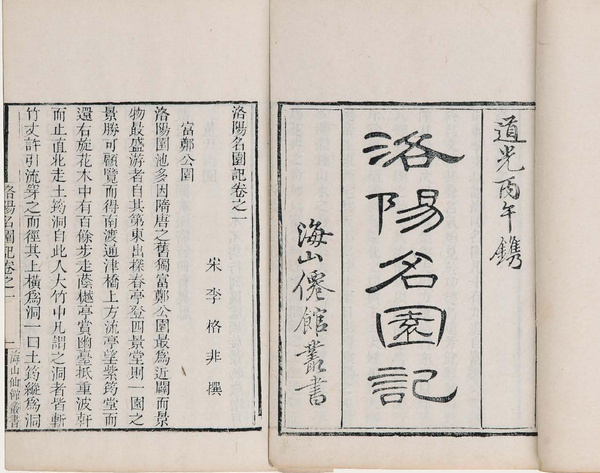 道光丙午鐫
洛陽名園記
海山僊館叢書
洛陽名園記卷之一
宋 李格非 撰
富鄭公園
洛陽園池多因隋唐之舊獨富鄭公園最爲近闢而景
物最盛游者自其第東出探春亭登四景堂則一園之
景勝可顧覽而得南渡通津橋上方流亭望紫筠堂而
還右旋花木中有百餘步走蔭樾亭賞幽臺抵重波軒
而止直北走土筠洞自此入大竹中凡謂之洞者皆斬
竹丈許引流穿之而徑其上橫爲洞一曰土筠縱爲洞
洛陽名園記卷之一 一 海山仙館叢書